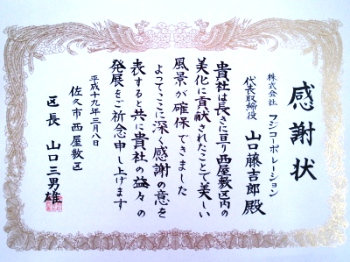 感謝状
株式会社 フジコーポレーション
代表取締役 山口藤吉郎 殿
貴社は長きに亘り西屋敷区内の
美化に貢献されたことで美しい
風景が確保できました
よってここに深く感謝の意を
表すると共に貴社の益々の
発展をご祈念申し上げます
平成十九年三月八日
佐久市西屋敷区
区長 山口三男雄